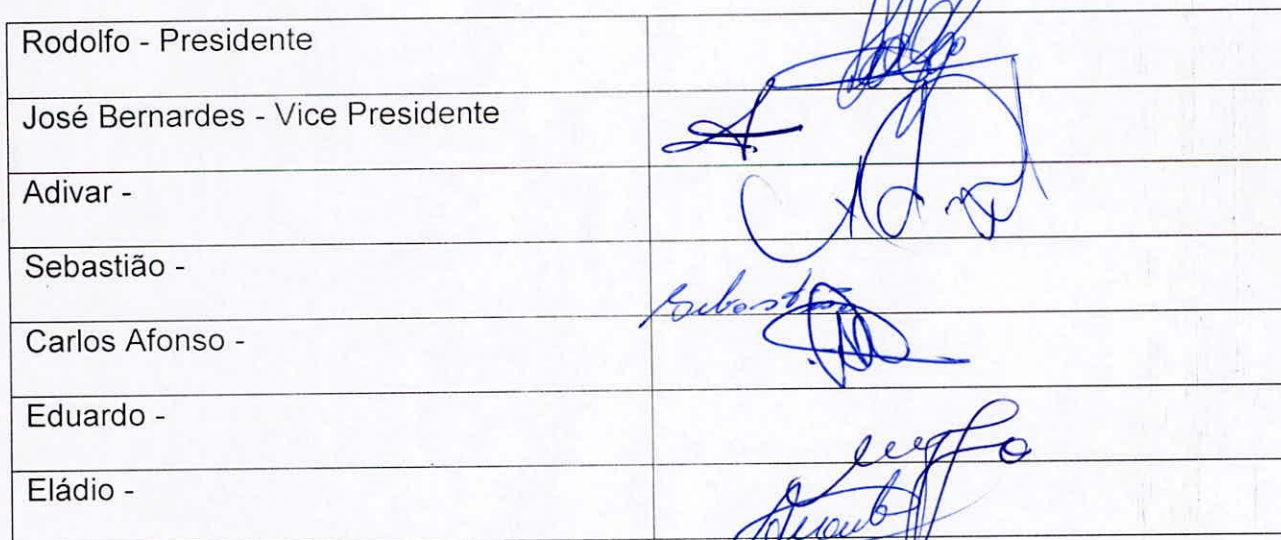 Rodolfo - Presidente
José Bernardes - Vice Presidente
Adivar -
Sebastião -
Sebastião
Carlos Afonso -
Eduardo -
Eládio -